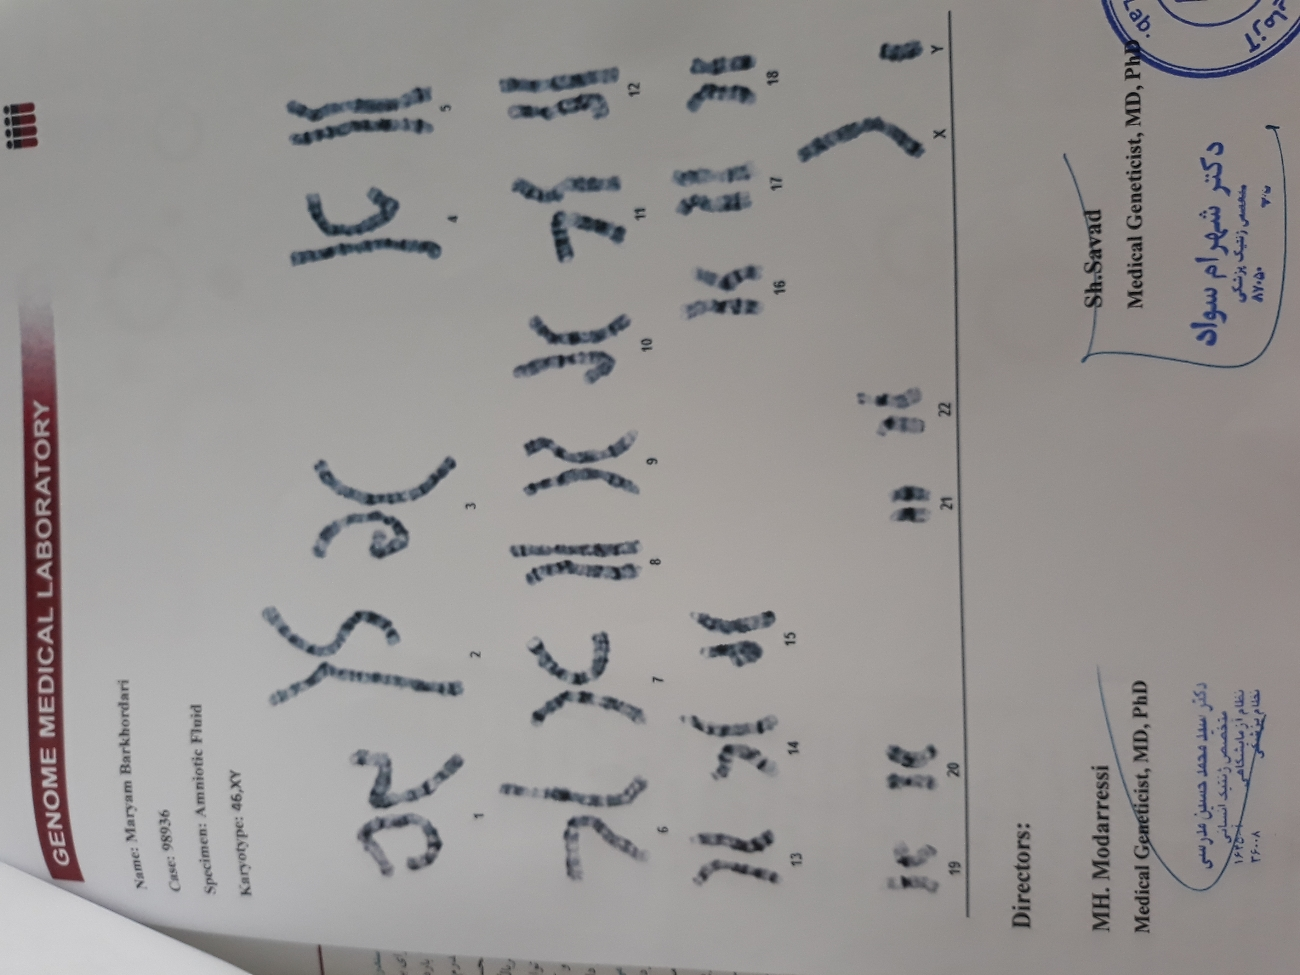 GENOME MEDICAL LABORATORY
Name: Maryam Barkhordari
Case: 98936
Specimen: Amniotic Fluid
Karyotype: 46,XY
1 2 3 4 5
6 7 8 9 10 11 12
13 14 15 16 17 18
19 20 21 22 X Y
Directors:
MH. Modarressi
Medical Geneticist, MD, PhD
دکتر سید محمد حسین مدرسی
متخصص ژنتیک انسانی
نظام آزمایشگاهی
نظام پزشکی
۳۶۰۰۸
Sh.Savad
Medical Geneticist, MD, PhD
دکتر شهرام سواد
متخصص ژنتیک پزشکی
۸۷۰۵۰
Lab.